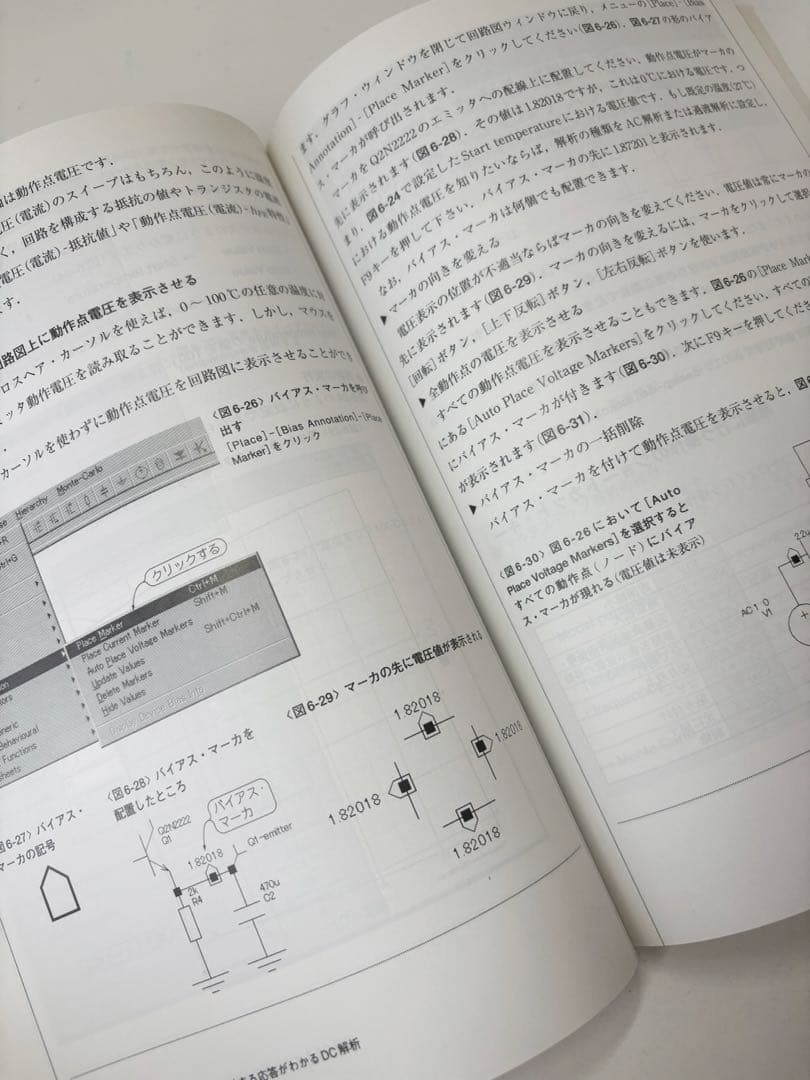 は動作点電圧です.
圧(電流)のスイープはもちろん,このように温度
く,回路を構成する抵抗の値やトランジスタの電流
電圧(電流)-抵抗値」や「動作点電圧(電流)-hFE特性」
ます.
路図上に動作点電圧を表示させる
ロスヘア・カーソルを使えば,0〜100℃の任意の温度に
ミッタ動作電圧を読み取ることができます.しかし,マウスを
カーソルを使わずに動作点電圧を回路図に表示させることができ
〈図6-26〉バイアス・マーカを呼び
出す
[Place]-[Bias Annotation]-[Place
Marker]をクリック
Hierarchy Monte-Carlo
クリックする
Place Marker Ctrl+M
Place Current Marker Shift+M
Auto Place Voltage Markers Shift+Ctrl+M
Update Values
Delete Markers
Hide Values
Behavioural
Functions
sheets
図6-27〉バイアス・
マーカの記号
〈図6-28〉バイアス・マーカを
配置したところ
バイアス・
マーカ
Q2N2222
Q1
1.82018
Q1-emitter
2k
R4
470u
C2
〈図6-29〉マーカの先に電圧値が表示される
1.82018
1.82018
1.82018
1.82018
する応答がわかるDC解析
ます.グラフ・ウィンドウを閉じて回路図ウィンドウに戻り,メニューの[Place]-[Bias
Annotation]-[Place Marker]をクリックしてください(図6-26).図6-27の形のバイア
ス・マーカが呼び出されます.
マーカをQ2N2222のエミッタへの配線上に配置してください.動作点電圧がマーカの
先に表示されます(図6-28).その値は1.82018ですが,これは0℃における電圧です.つ
まり,図6-24で設定したStart temperatureにおける電圧値です.もし既定の温度(27℃)
における動作点電圧を知りたいならば,解析の種類をAC解析または過渡解析に設定し,
F9キーを押して下さい.バイアス・マーカの先に1.87201と表示されます.
なお,バイアス・マーカは何個でも配置できます.
▶マーカの向きを変える
電圧表示の位置が不適当ならばマーカの向きを変えてください.電圧値は常にマーカの
先に表示されます(図6-29).マーカの向きを変えるには,マーカをクリックして選択
[回転]ボタン,[上下反転]ボタン,[左右反転]ボタンを使います.
▶全動作点の電圧を表示させる
すべての動作点電圧を表示させることもできます.図6-26の[Place Mar
にある[Auto Place Voltage Markers]をクリックしてください.すべての
にバイアス・マーカが付きます(図6-30).次にF9キーを押してくださ
が表示されます(図6-31).
▶バイアス・マーカの一括削除
バイアス・マーカを付けて動作点電圧を表示させると,図
〈図6-30〉図6-26において[Auto
Place Voltage Markers]を選択すると
すべての動作点(ノード)にバイア
ス・マーカが現れる(電圧値は未表示)
2.2u
AC 1 0
V1